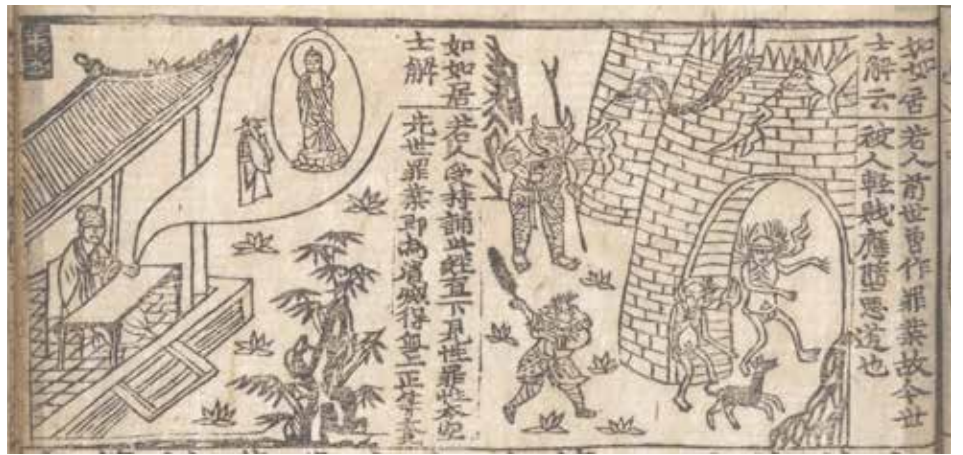 如如居士解云
若人前世曾作罪業故今世
被人輕賤應墮惡道也
如如居士解
若人受持誦此經直下見性罪性本空
先世罪業即為消滅得無上正等